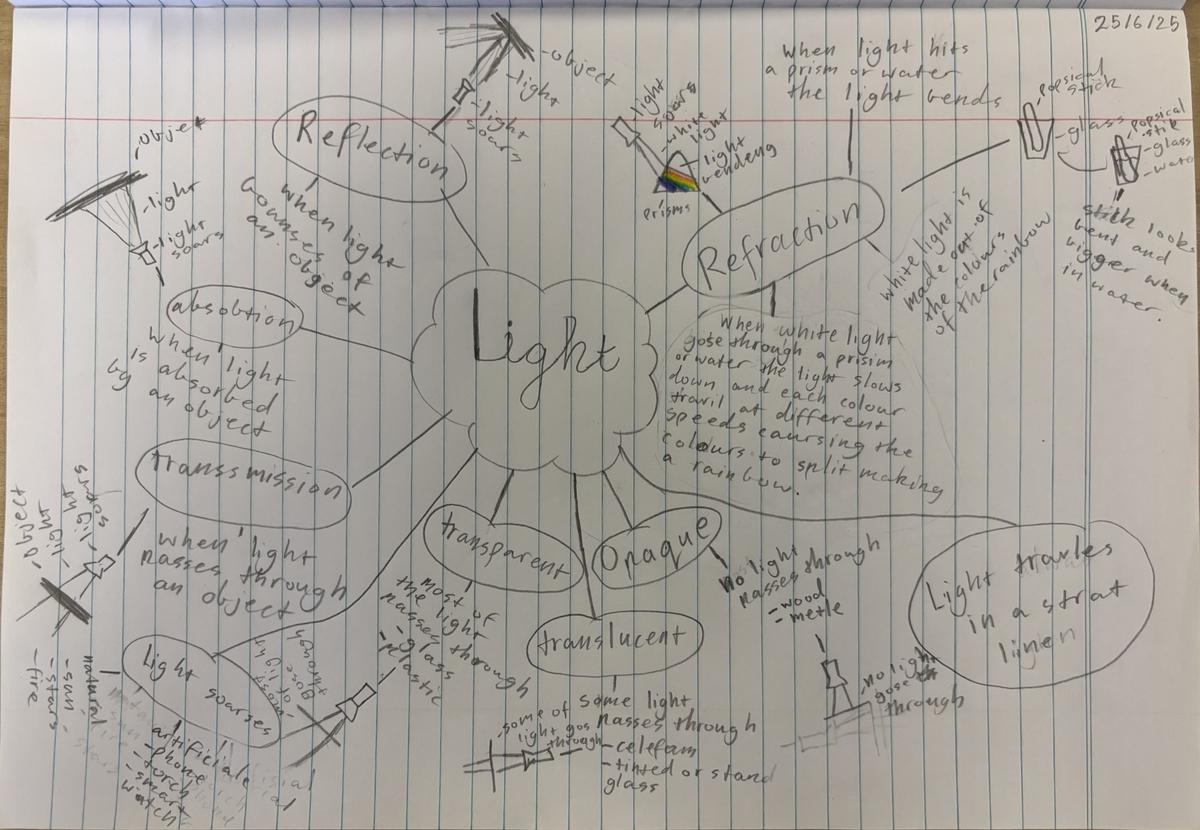 25/6/25
Light
Reflection
when light
bounses of
an object
-object
-light
-light
soars
absobtion
when light
is absorbed
by an object
-object
-light
-light
soars
transsmission
when light
passes through
an object
-object
-light
-light
soars
light soarses
natural
-sun
-stars
-fire
artificiale
-phone
-torch
-smart
watch
transparent
most of
the light
passes through
-glass
-plastic
-most
of light
gose
through
translucent
some light
passes through
-celefam
-tinted or stand
glass
-some of
light gos
through
Opaque
no light
passes through
-wood
-metle
-no light
gose
through
Light travles
in a strat
linen
Refraction
when light hits
a prism or water
the light bends
-light
soars
-white
light
-light
bendeng
Prisms
white light is
made out of
the colours
of the rainbow
When white light
gose through a prisim
or water the light slows
down and each colour
travil at different
speeds caursing the
colours to split making
a rainbow.
-popsical
stick
-glass
-popsical
stik
-glass
-water
stick looks
bent and
bigger when
in water.